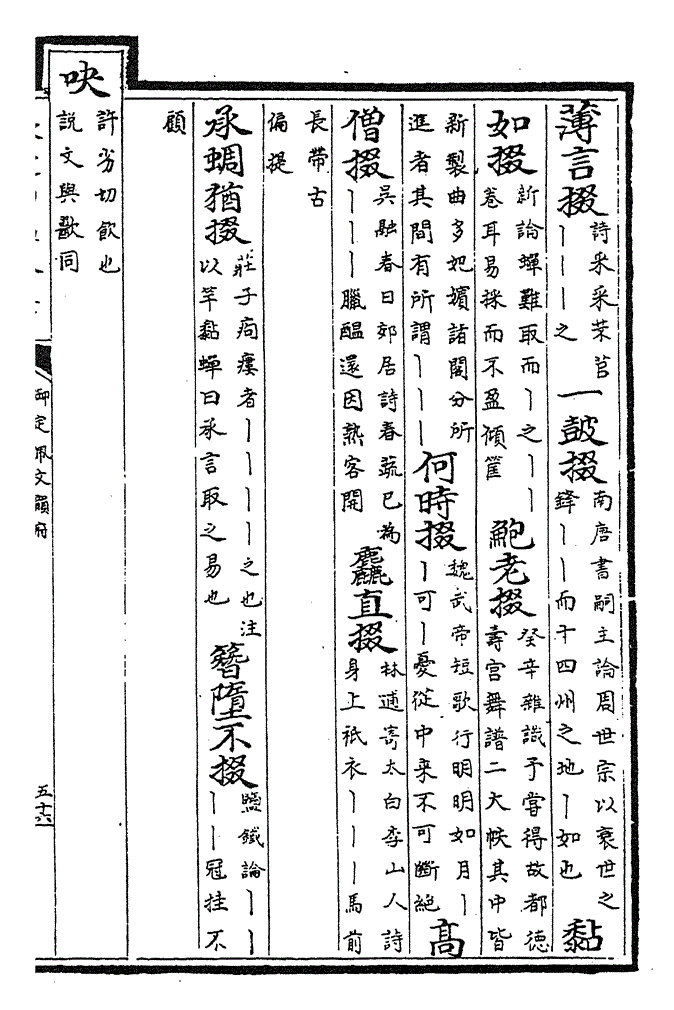 薄言掇 詩采采芣苢｜｜｜之 一鼓掇 南唐書嗣主論周世宗以衰世之鋒｜｜而十四州之地｜如也 黏
如掇 新論蟬難取而｜之｜｜卷耳易採而不盈傾筐 鮑老掇 癸辛雜識予嘗得故都德壽宮舞譜二大帙其中皆
新製曲多妃嬪諸閣分所進者其間有所謂｜｜｜ 何時掇 魏武帝短歌行明明如月｜｜可｜憂從中來不可斷絕 高
僧掇 吳融春日郊居詩春蔬已為｜｜｜臘醖還因熟客開 麤直掇 林逋寄太白李山人詩身上衹衣｜｜｜馬前
長帶古偏提
承蜩猶掇 莊子痀瘻者｜｜｜｜之也注以竿黏蟬曰承言取之易也 簪墮不掇 鹽鐵論｜｜｜｜冠挂不
顧
吷 許劣切飲也說文與歠同
御定佩文韻府
五十六